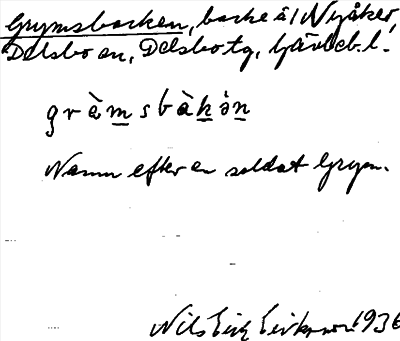 Grymsbacken, backe å / Nyåker,
Delsbo sn, Delsbo tg, Gävleb. l.
gràm̲sbàk̲ə̀n̲
Namn efter en soldat Grym.
Nils Erik Eriksson 1936